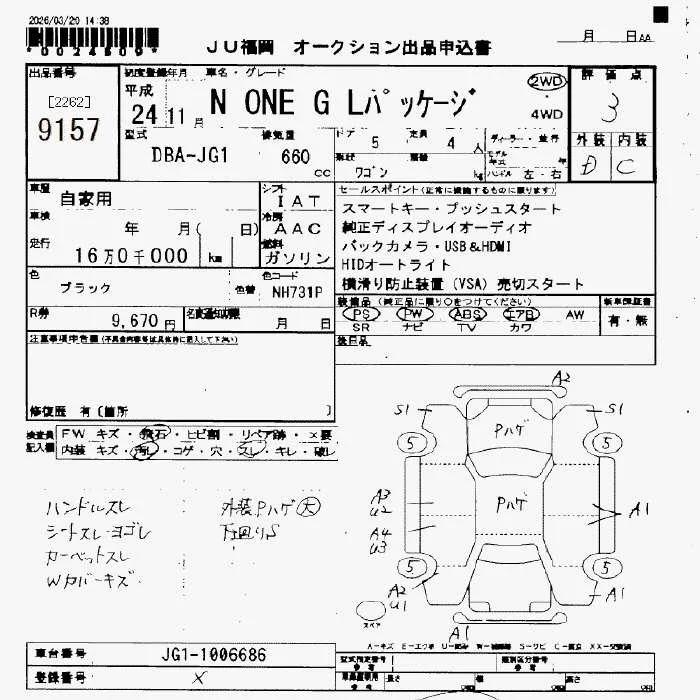 2026/03/20 14:38
*0024809*
JU福岡 オークション出品申込書
月 日AA
出品番号
[2262]
9157
初度登録年月 車名・グレード
平成
24 11月
N ONE G Lパッケージ
2WD
・
4WD
評価点
3
型式
DBA-JG1
排気量
660
cc
ドア
5
定員
4
人
形状
ワゴン
kg
ディーラー・並行
モデル年式
年
ハンドル 左・右
外装 内装
D C
車歴
自家用
シフト
IAT
車検
年 月( 日)
冷房
AAC
走行
16万0千000 km
燃料
ガソリン
色
ブラック
色替
色コード
NH731P
R券
9,670円
名変通知期限
月 日
セールスポイント(正常に機能するものに限ります)
スマートキー・プッシュスタート
純正ディスプレイオーディオ
バックカメラ・USB&HDMI
HIDオートライト
横滑り防止装置(VSA) 売切スタート
装備品(純正品に限り○をつけてください)
PS PW ABS エアB AW
SR ナビ TV カワ
新車保証書
有・無
後日品
注意事項申告欄(不具合内容等は具体的に記入して下さい)
修復歴 有〔箇所 〕
検査員
記入欄
FW キズ・飛石・ヒビ割・リペア跡・×要
内装 キズ・汚レ・コゲ・穴・スレ・キレ・破レ
ハンドルスレ
シートスレ・ヨゴレ
カーペットスレ
Wカバーキズ
外装Pハゲ大
下回りS
A2
S1
S1
Pハゲ
5
5
Pハゲ
A3
U2
A4
U3
A1
5
5
A2
U1
A1
スペア
A1
A-キズ E-エクボ U-凹み W-補修跡 S-サビ C-腐食 XX-交換済
車台番号
JG1-1006686
登録番号
×
型式指定番号
参考
類別区分番号
参考
長さ
幅
高さ